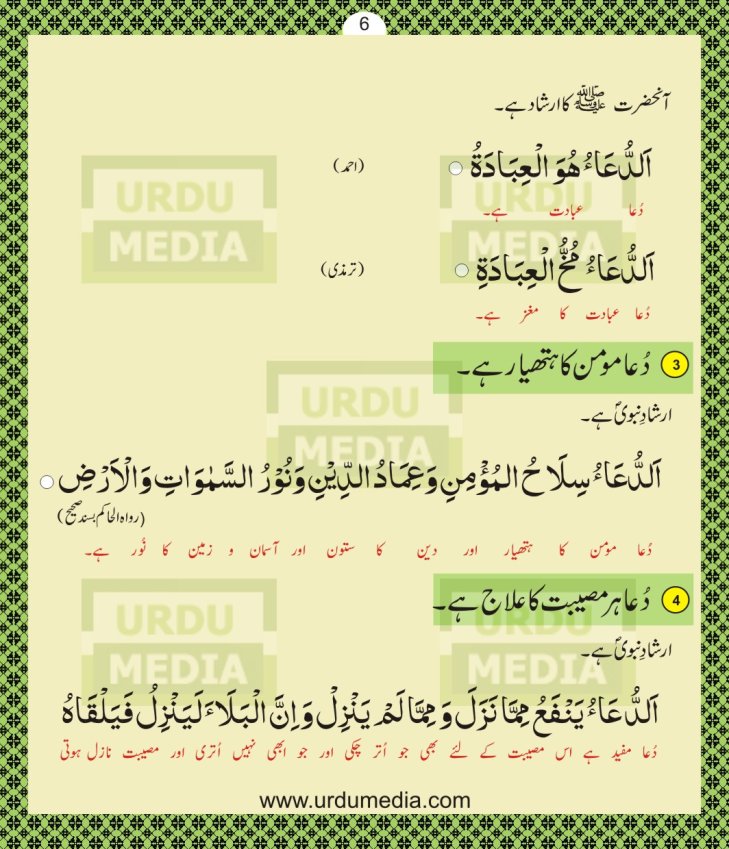 6
آنحضرت ﷺ کا ارشاد ہے۔
اَلدُّعَاءُ هُوَ الْعِبَادَةُ ○ (احمد)
دُعا عبادت ہے۔
اَلدُّعَاءُ مُخُّ الْعِبَادَةِ ○ (ترمذی)
دُعا عبادت کا مغز ہے۔
3 دُعا مومن کا ہتھیار ہے۔
ارشادِ نبویؐ ہے۔
اَلدُّعَاءُ سِلَاحُ الْمُؤْمِنِ وَعِمَادُ الدِّيْنِ وَنُوْرُ السَّمٰوَاتِ وَالْاَرْضِ ○
(رواہ الحاکم بسند صحیح)
دُعا مومن کا ہتھیار اور دین کا ستون اور آسمان و زمین کا نُور ہے۔
4 دُعا ہر مصیبت کا علاج ہے۔
ارشادِ نبویؐ ہے۔
اَلدُّعَاءُ يَنْفَعُ مِمَّا نَزَلَ وَ مِمَّا لَمْ يَنْزِلْ وَاِنَّ الْبَلَاءَ لَيَنْزِلُ فَيَلْقَاهُ
دُعا مفید ہے اس مصیبت کے لئے بھی جو اُتر چکی اور جو ابھی نہیں اُتری اور مصیبت نازل ہوتی
www.urdumedia.com
URDU
MEDIA
URDU
MEDIA
URDU
MEDIA
URDU
MEDIA
URDU
MEDIA